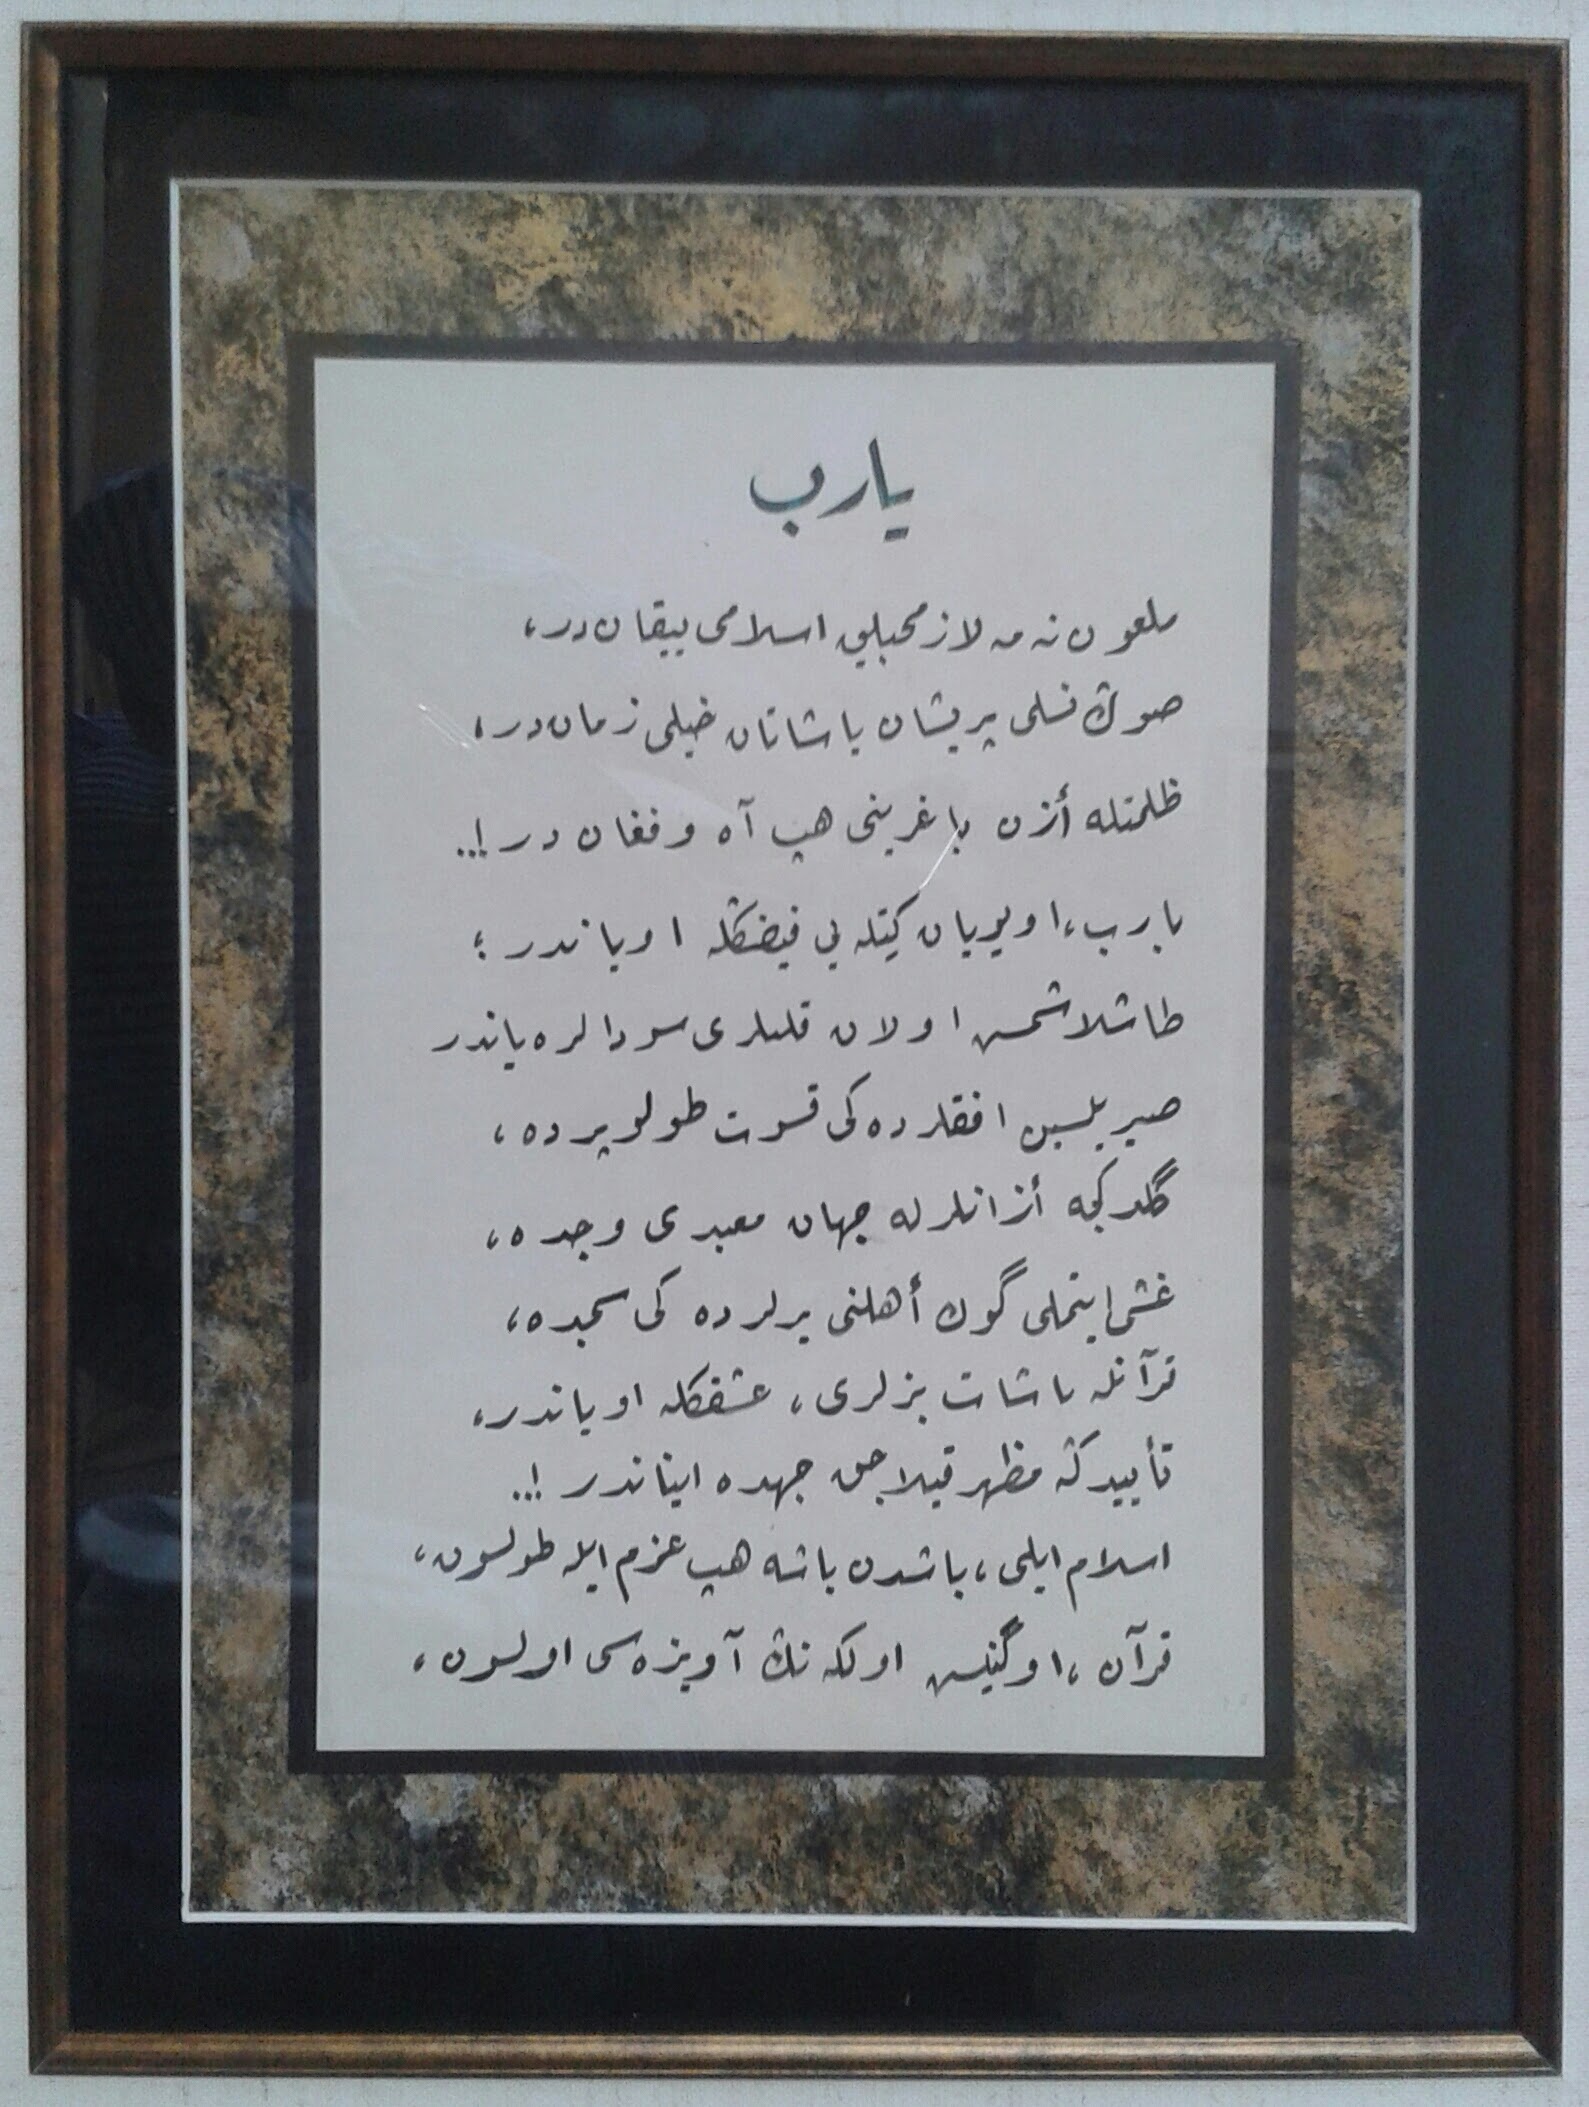 يارب
ملعون نه مه لازمجيلق اسلامى ييقان در،
صوڭ نسلى پريشان ياشاتان خيلى زمان در،
ظلمتله أزن باغرينى هپ آه و فغان در!..
يارب، اويويان كيتله يى فيضڭله اوياندر؛
طاشلاشمش اولان قلبلرى سودالره ياندر
صيريلسين افقلرده كى قسوت طولو پرده،
گلدكجه أزانلرله جهان معبدى وجده،
غشى ايتملى گوك أهلنى يرلرده كى سجده،
قرآنله ياشات بزلرى، عشقڭله اوياندر،
تأييدڭه مظهر قيلاجق جهده ايناندر!..
اسلام ايلى، باشدن باشه هپ عزم ايله طولسون،
قرآن، او گنيش اولكه نڭ آويزه سى اولسون،